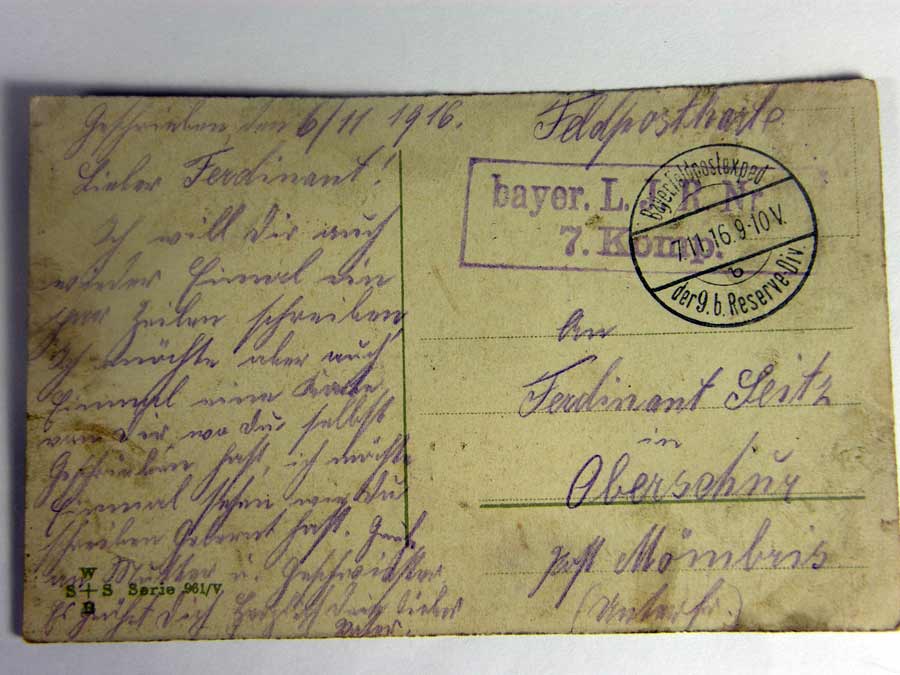 Geschrieben den 6/11 1916.
Feldpostkarte
Lieber Ferdinant!
Ich will Dir auch
wieder Einmal ein
paar Zeilen schreiben
Ich möchte aber auch
Einmahl eine Karte
von Dir wo du selbst
Geschrieben hast, ich möchte
Einmal sehen wie Du
schreiben Gelernt hast. Gruß
an Mutter u. Geschwister
Es grühst Dich Herzlich Dein lieber
Vater.
bayer. L. J. R. Nr
7. Komp.
Bayer. Feldpostexped.
7.11.16.9-10 V.
b
der 9. b. Reserve-Div.
An
Ferdinant Seitz
in
Oberschur
Post Mömbris
(Unterfr.)
W
S+S Serie 961/V.
B